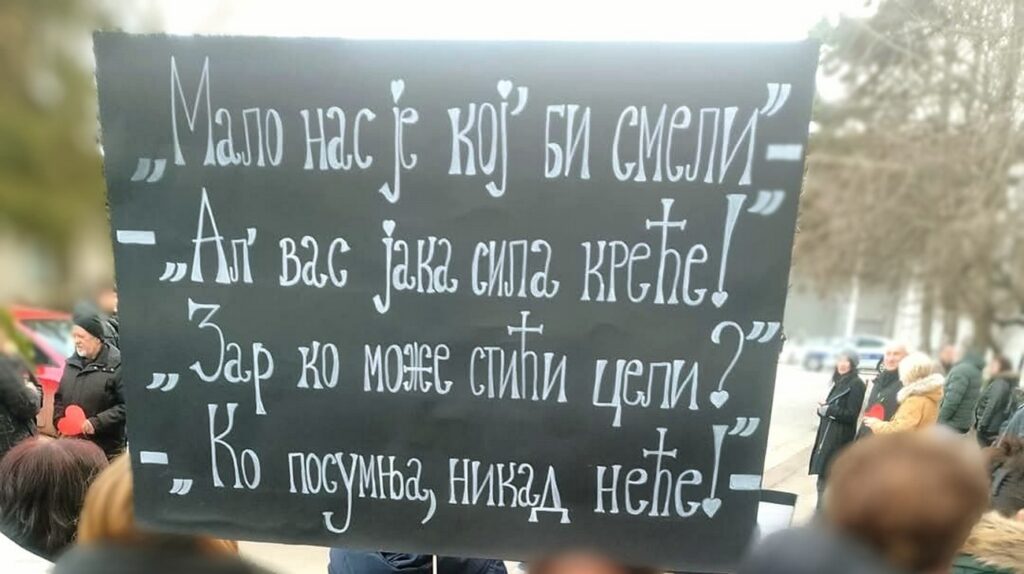 „Мало нас је кој' би смели”–
– „Ал' вас јака сила креће!”
„Зар ко може стићи цели?”
– „Ко посумња, никад неће!”–